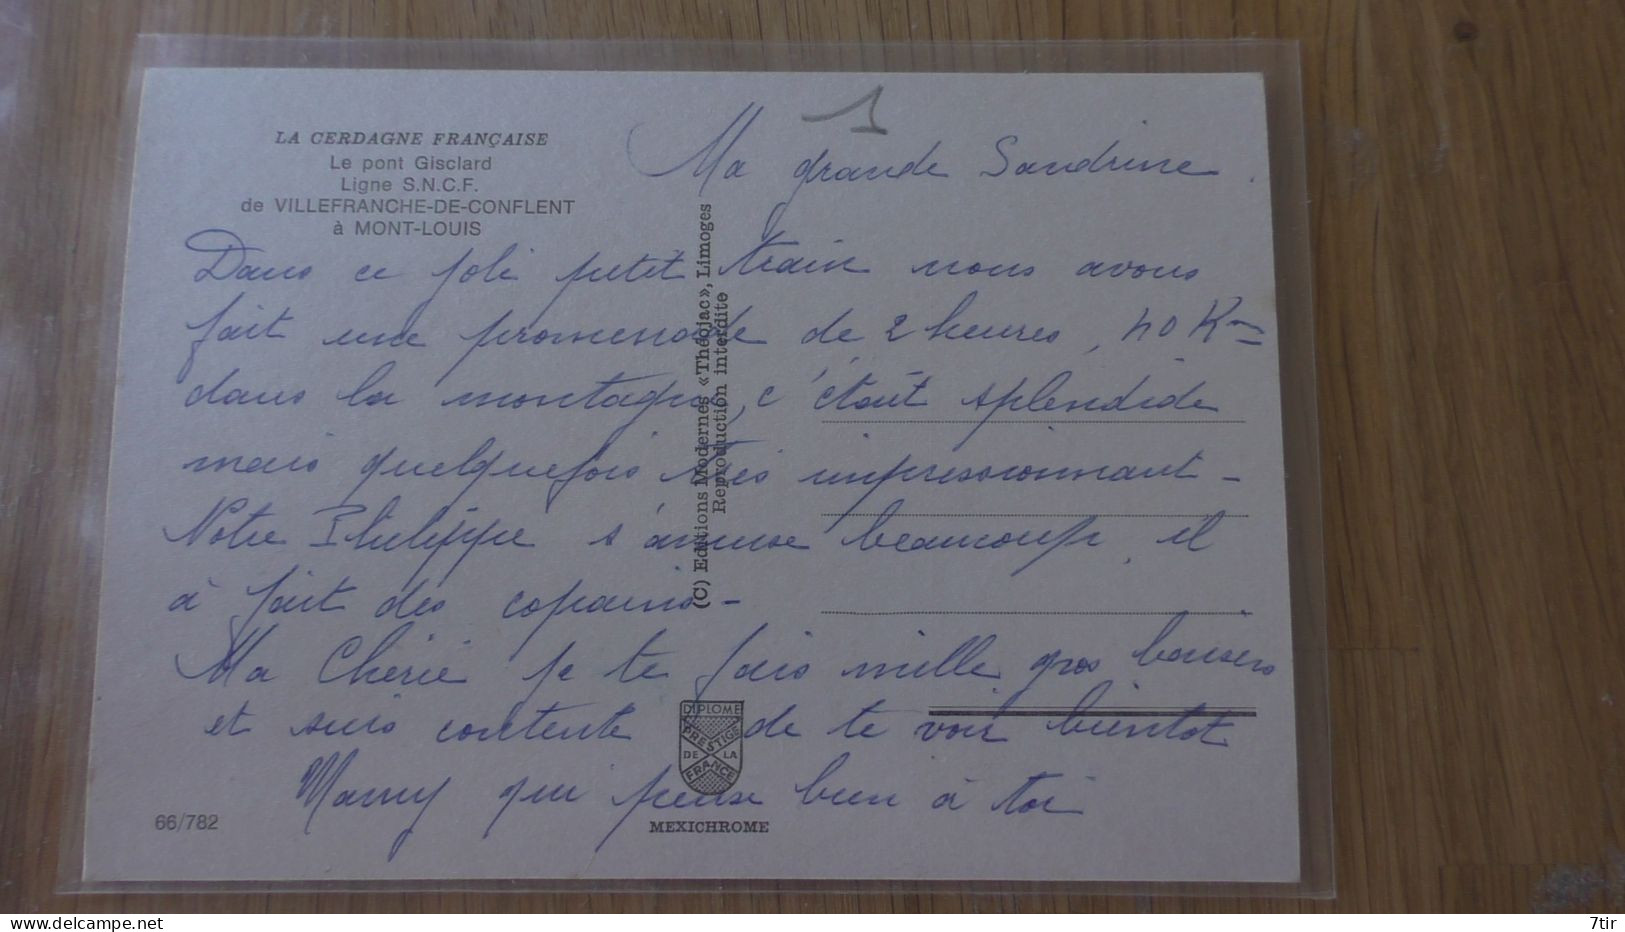 1
LA CERDAGNE FRANÇAISE
Le pont Gisclard
Ligne S.N.C.F.
de VILLEFRANCHE-DE-CONFLENT
à MONT-LOUIS
Ma grande Sandrine
Dans ce joli petit train nous avons
fait une promenade de 2 heures, 40 Km
dans la montagne, c'était splendide
mais quelquefois très impressionnant -
Notre Philippe s'amuse beaucoup, il
à fait des copains -
Ma Chérie je te fais mille gros baisers
et suis contente de te voir bientot
Mamy qui pense bien à toi
(C) Editions Modernes «Théojac», Limoges
Reproduction interdite
DIPLOME
PRESTIGE
DE LA
FRANCE
MEXICHROME
66/782
7tir